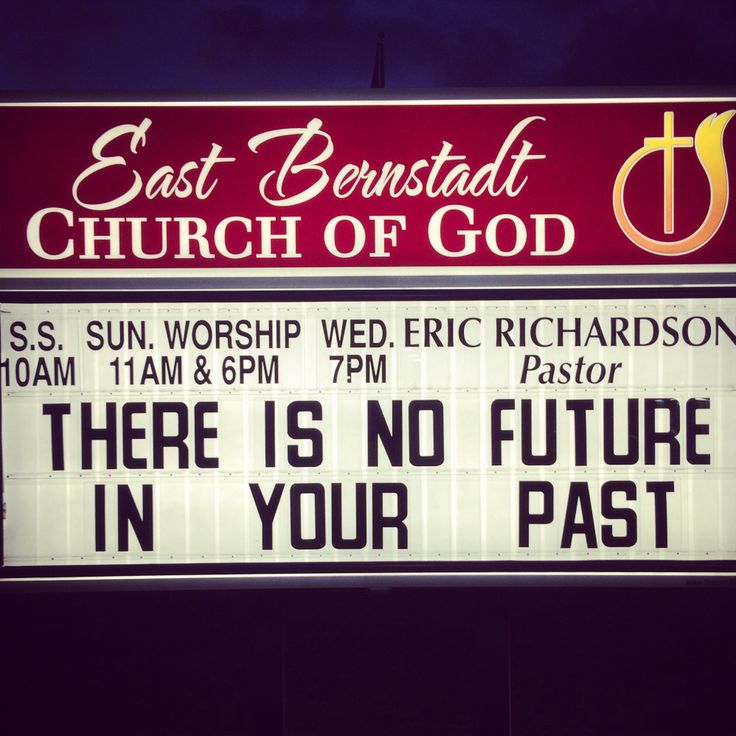 East Bernstadt
CHURCH OF GOD
S.S. SUN. WORSHIP WED. ERIC RICHARDSON
10AM 11AM & 6PM 7PM Pastor
THERE IS NO FUTURE
IN YOUR PAST